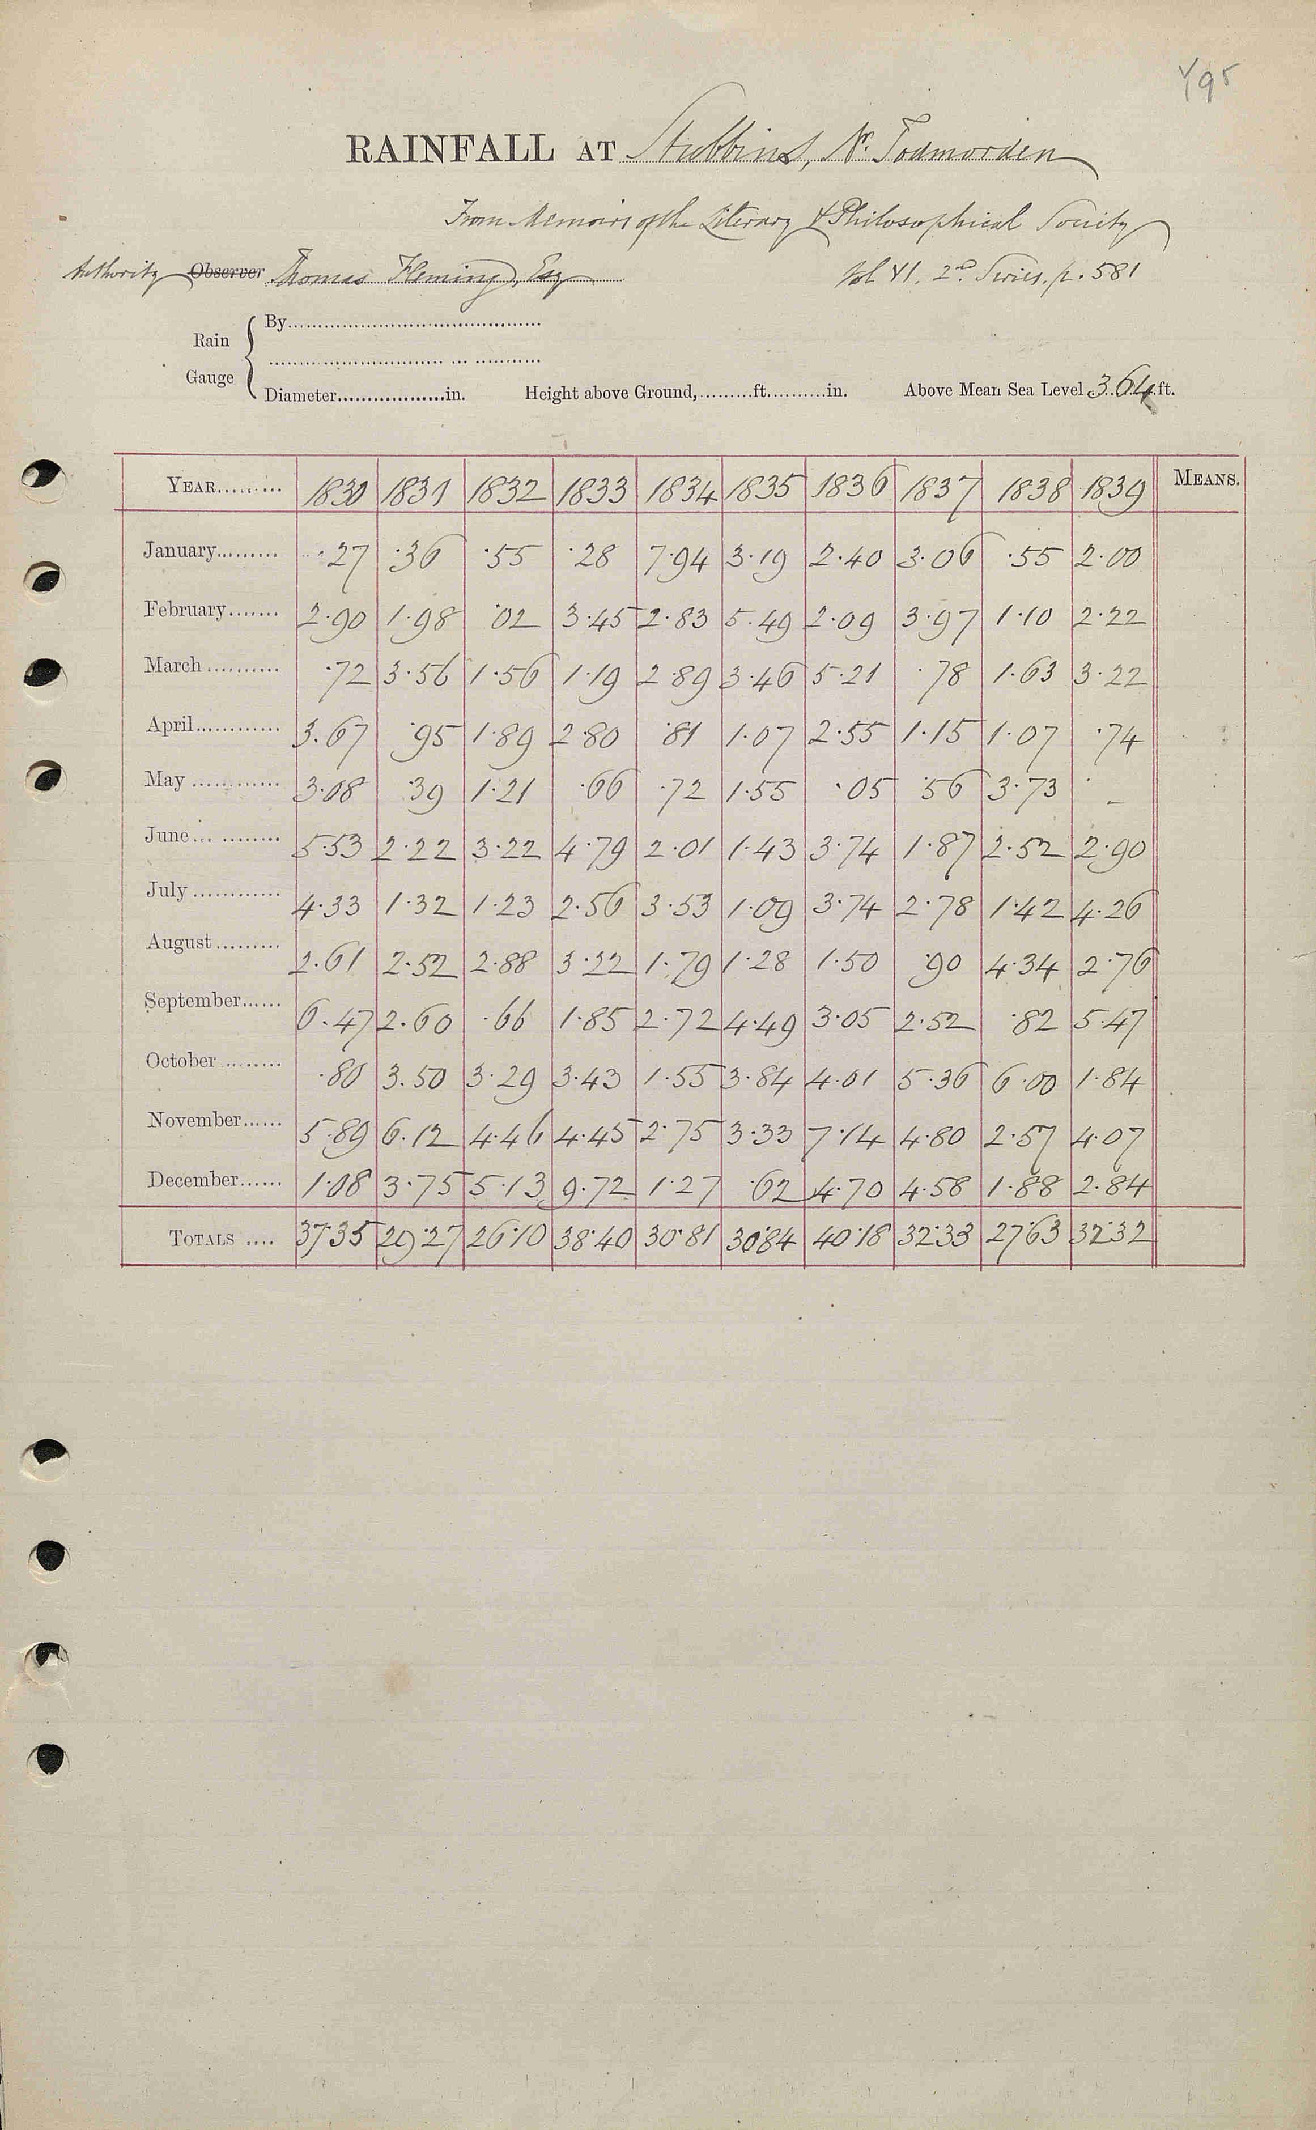 Y95
RAINFALL AT Stubbins, Nr. Todmorden
From Memoirs of the Literary & Philosophical Society
Authority Observer Thomas Fleming, Esq Vol VI. 2nd Series. p. 581
Rain Gauge { By........................................
........................................
Diameter...................in. Height above Ground,..........ft...........in. Above Mean Sea Level 364 ft.
YEAR......... 1830 1831 1832 1833 1834 1835 1836 1837 1838 1839 MEANS.
January......... .27 .36 .55 .28 7.94 3.19 2.40 3.06 .55 2.00
February....... 2.90 1.98 .02 3.45 2.83 5.49 2.09 3.97 1.10 2.22
March .......... .72 3.56 1.56 1.19 2.89 3.46 5.21 .78 1.63 3.22
April............ 3.67 .95 1.89 2.80 .81 1.07 2.55 1.15 1.07 .74
May ............ 3.08 .39 1.21 .66 .72 1.55 .05 .56 3.73 . –
June... ......... 5.53 2.22 3.22 4.79 2.01 1.43 3.74 1.87 2.52 2.90
July ............ 4.33 1.32 1.23 2.56 3.53 1.09 3.74 2.78 1.42 4.26
August ......... 2.61 2.52 2.88 3.22 1.79 1.28 1.50 .90 4.34 2.76
September...... 6.47 2.60 .66 1.85 2.72 4.49 3.05 2.52 .82 5.47
October ......... .80 3.50 3.29 3.43 1.55 3.84 4.01 5.36 6.00 1.84
November...... 5.89 6.12 4.46 4.45 2.75 3.33 7.14 4.80 2.57 4.07
December...... 1.08 3.75 5.13 9.72 1.27 .62 4.70 4.58 1.88 2.84
TOTALS .... 37.35 29.27 26.10 38.40 30.81 30.84 40.18 32.33 27.63 32.32